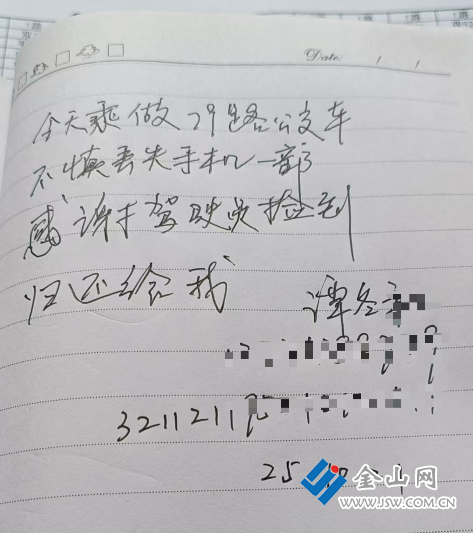 Date: / /
今天乘做29路公交车
不慎丢失手机一部
感谢才驾驶员捡到
归还给我 谭冬
3211211
25
金山网
WWW.JSW.COM.CN